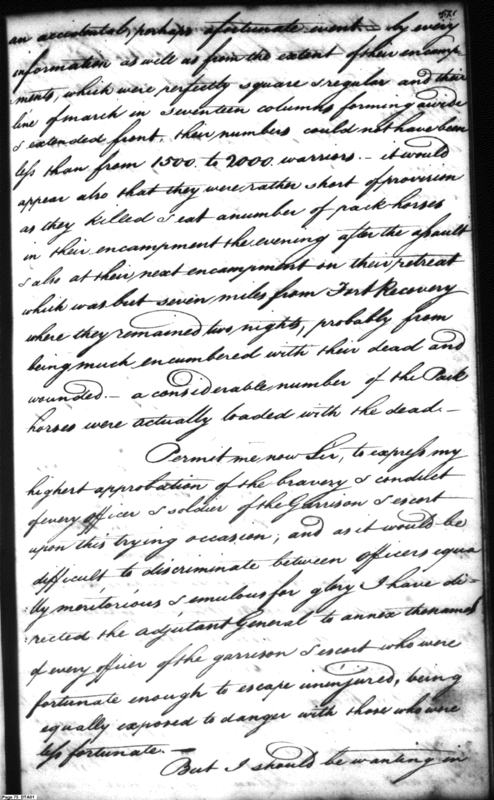 an accidental, perhaps a fortunate event - by every
information as well as from the extent of their encamp-
ments, which were perfectly square & regular and their
line of march in seventeen columns forming a wide
& extended front, their numbers could not have been
less than from 1500 to 2000 warriors. - it would
appear also that they were rather short of provision
as they killed & eat a number of pack horses
in their encampment the evening after the assault
& also at their next encampment on their retreat
which was but seven miles from Fort Recovery
where they remained two nights, probably from
being much encumbered with their dead and
wounded. - a considerable number of the Pack
horses were actually loaded with the dead. -
Permit me now Sir, to express my
highest approbation of the bravery & conduct
of every officer & soldier of the Garrison & escort
upon this trying occasion, and as it would be
difficult to discriminate between officers equa
lly meritorious & emulous for glory I have di-
rected the adjutant General to annex the names
of every officer of the garrison & escort who were
fortunate enough to escape uninjured, being
equally exposed to danger with those who were
less fortunate. -
But I should be wanting in
Page 73 DTA01